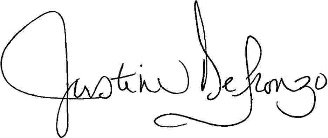 Justin Defonzo